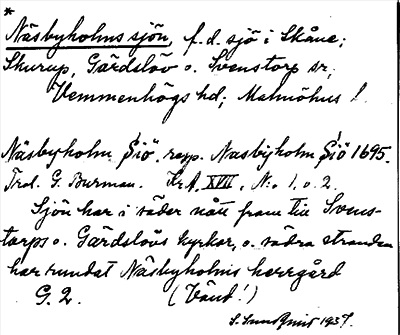 *
Näsbyholms sjön, f.d. sjö i Skåne;
Skurup, Gärdslöv o. Svenstorp sr;
Vemmenhögs hd; Malmöhus l.
Näsbyholm Siö resp. Nasbyholm Siö 1695.
Trol. G. Burman. Kr.A. XVII, N:o 1, o. 2.
Sjön har i söder nått fram till Svens-
torps o. Gärdslövs kyrkor, o. södra stranden
har rundat Näsbyholms herrgård
G. 2. (Vänd!)
S. Sundquist 1937.